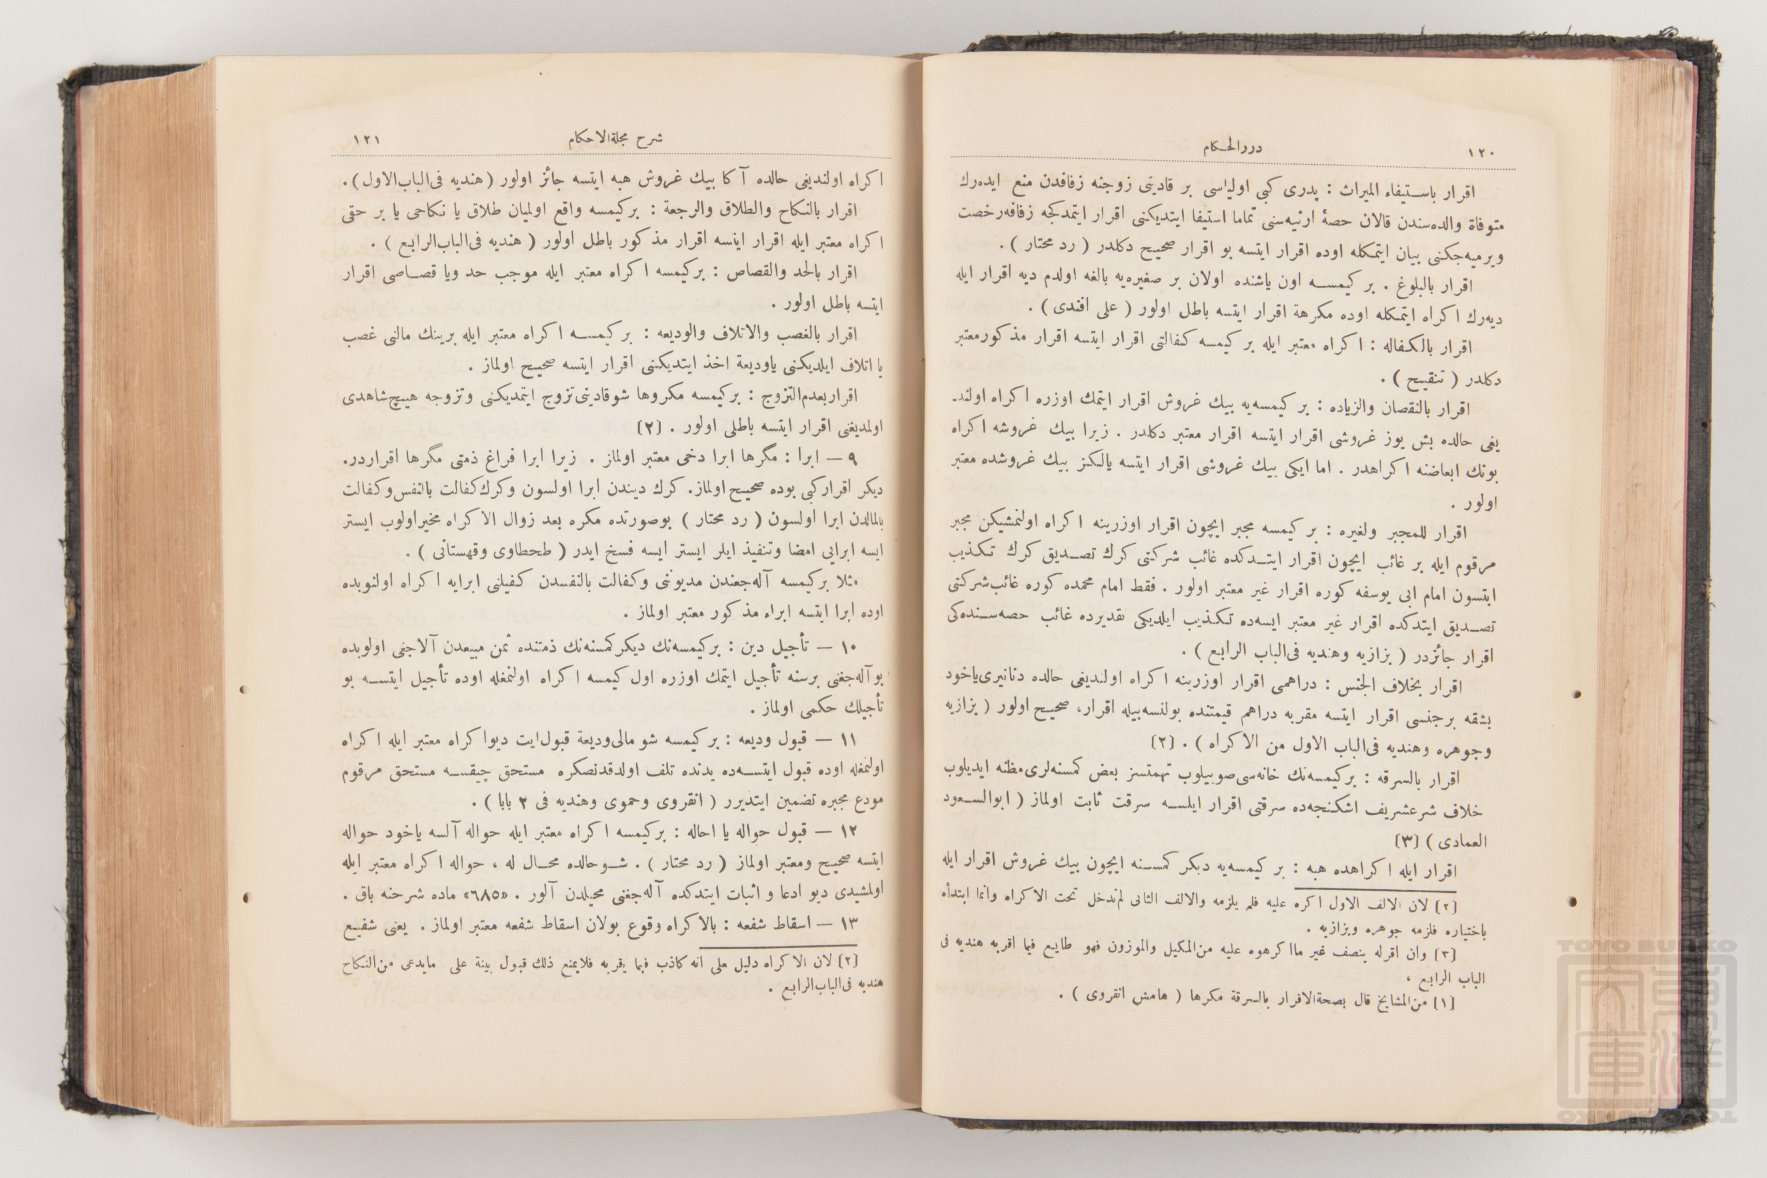 ١٢٠
دررالحكام
اقرار باستيفاء الميراث : پدرى كبى اولياسى بر قادينى زوجنه زفافدن منع ايده‌رك
متوفاة والده‌سندن قالان حصهٔ ارثيه‌سنى تماما استيفا ايتديكنى اقرار ايتمدكجه زفافه رخصت
ويرميه‌جكنى بيان ايتمكله اوده اقرار ايتسه بو اقرار صحيح دكلدر ( رد محتار ) .
اقرار بالبلوغ . بر كيمسه اون ياشنده اولان بر صغيره‌يه بالغه اولدم ديه اقرار ايله
ديه‌رك اكراه ايتمكله اوده مكرهة اقرار ايتسه باطل اولور ( على افندى ) .
اقرار بالكفاله : اكراه معتبر ايله بر كيمسه كفالتى اقرار ايتسه اقرار مذكور معتبر
دكلدر ( تنقيح ) .
اقرار بالنقصان والزياده : بر كيمسه‌يه بيك غروش اقرار ايتمك اوزره اكراه اولند-
يغى حالده بش يوز غروشى اقرار ايتسه اقرار معتبر دكلدر . زيرا بيك غروشه اكراه
بونك ابعاضنه اكراهدر . اما ايكى بيك غروشى اقرار ايتسه يالكز بيك غروشده معتبر
اولور .
اقرار للمجبر ولغيره : بر كيمسه مجبر ايچون اقرار اوزرينه اكراه اولنمشيكن مجبر
مرقوم ايله بر غائب ايچون اقرار ايتدكده غائب شركتى كرك تصديق كرك تكذيب
ايتسون امام ابى يوسفه كوره اقرار غير معتبر اولور . فقط امام محمده كوره غائب شركتى
تصديق ايتدكده اقرار غير معتبر ايسه‌ده تكذيب ايلديكى تقديرده غائب حصه‌سنده‌كى
اقرار جائزدر ( بزازيه وهنديه فى الباب الرابع ) .
اقرار بخلاف الجنس : دراهمى اقرار اوزرينه اكراه اولنديغى حالده دنانيرى ياخود
بشقه برجنسى اقرار ايتسه مقربه دراهم قيمتنده بولنسه‌بيله اقرار، صحيح اولور ( بزازيه
وجوهره وهنديه فى الباب الاول من الاكراه ) . [٢]
اقرار بالسرقه : بركيمسه‌نك خانه‌سى صوييلوب تهمتسز بعض كمسنه‌لرى مظنه ايديلوب
خلاف شرع‌شريف اشكنجه‌ده سرقتى اقرار ايلسه سرقت ثابت اولماز ( ابوالسعود
العمادى ) [٣]
اقرار ايله اكراهده هبه : بر كيمسه‌يه ديكر كمسنه ايچون بيك غروش اقرار ايله
[٢] لان الالف الاول اكره عليه فلم يلزمه والالف الثانى لم‌تدخل تحت الاكراه وانما ابتدأه
باختياره فلزمه جوهره وبزازيه .
[٣] وان اقرله بنصف غير ماا كرهوه عليه من‌المكيل والموزون فهو طايع فيما اقربه هنديه فى
الباب الرابع .
[١] من‌المشايخ قال بصحةالاقرار بالسرقة مكرها ( هامش انقروى ) .
شرح مجلةالاحكام
١٢١
اكراه اولنديغى حالده آكا بيك غروش هبه ايتسه جائز اولور ( هنديه فى‌الباب‌الاول ) .
اقرار بالنكاح والطلاق والرجعة : بركيمسه واقع اوليان طلاق يا نكاحى يا بر حقى
اكراه معتبر ايله اقرار ايتسه اقرار مذكور باطل اولور ( هنديه فى‌الباب‌الرابع ) .
اقرار بالحد والقصاص : بركيمسه اكراه معتبر ايله موجب حد ويا قصاصى اقرار
ايتسه باطل اولور .
اقرار بالغصب والاتلاف والوديعه : بر كيمسه اكراه معتبر ايله برينك مالنى غصب
يا اتلاف ايلديكنى ياوديعة اخذ ايتديكنى اقرار ايتسه صحيح اولماز .
اقراربعدم‌التزوج : بركيمسه مكروها شو قادينى تزوج ايتمديكنى وتزوجه هيچ شاهدى
اولمديغنى اقرار ايتسه باطلى اولور . [٢]
٩ — ابرا : مكرها ابرا دخى معتبر اولماز . زيرا ابرا فراغ ذمتى مكرها اقراردر.
ديكر اقراركبى بوده صحيح اولماز. كرك ديندن ابرا اولسون وكرك كفالت بالنفس وكفالت
بالمالدن ابرا اولسون ( رد محتار ) بوصورتده مكره بعد زوال الاكراه مخير اولوب ايستر
ايسه ابرايى امضا وتنفيذ ايلر ايستر ايسه فسخ ايدر ( طحطاوى وقهستانى ) .
مثلا بركيمسه آله‌جغندن مديوننى وكفالت بالنفسدن كفيلنى ابرايه اكراه اولنوبده
اوده ابرا ايتسه ابراء مذكور معتبر اولماز .
١٠ — تأجيل دين : بركيمسه‌نك ديكر كمسنه‌نك ذمتنده ثمن مبيعدن آلاجغى اولوبده
بو آله‌جغنى برسنه تأجيل ايتمك اوزره اول كيمسه اكراه اولنمغله اوده تأجيل ايتسه بو
تأجيلك حكمى اولماز .
١١ — قبول وديعه : بر كيمسه شو مالى وديعة قبول‌ايت ديو اكراه معتبر ايله اكراه
اولنمغله اوده قبول ايتسه‌ده يدنده تلف اولدقدنصكره مستحق چيقسه مستحق مرقوم
مودع مجبره تضمين ايتديرر ( انقروى وحموى وهنديه فى ٢ بابا ) .
١٢ — قبول حواله يا احاله : بركيمسه اكراه معتبر ايله حواله آلسه ياخود حواله
ايتسه صحيح ومعتبر اولماز ( رد محتار ) . شوحالده محال له ، حواله اكراه معتبر ايله
اولمشيدى ديو ادعا و اثبات ايتدكده آله‌جغنى محيلدن آلور . «٦٨٥» ماده شرحنه باق .
١٣ — اسقاط شفعه : بالاكراه وقوع بولان اسقاط شفعه معتبر اولماز . يعنى شفيع
[٢] لان الاكراه دليل على انه كاذب فيما يقربه فلايمنع ذلك قبول بينة على مايدعى من‌النكاح
هنديه فى‌الباب‌الرابع .